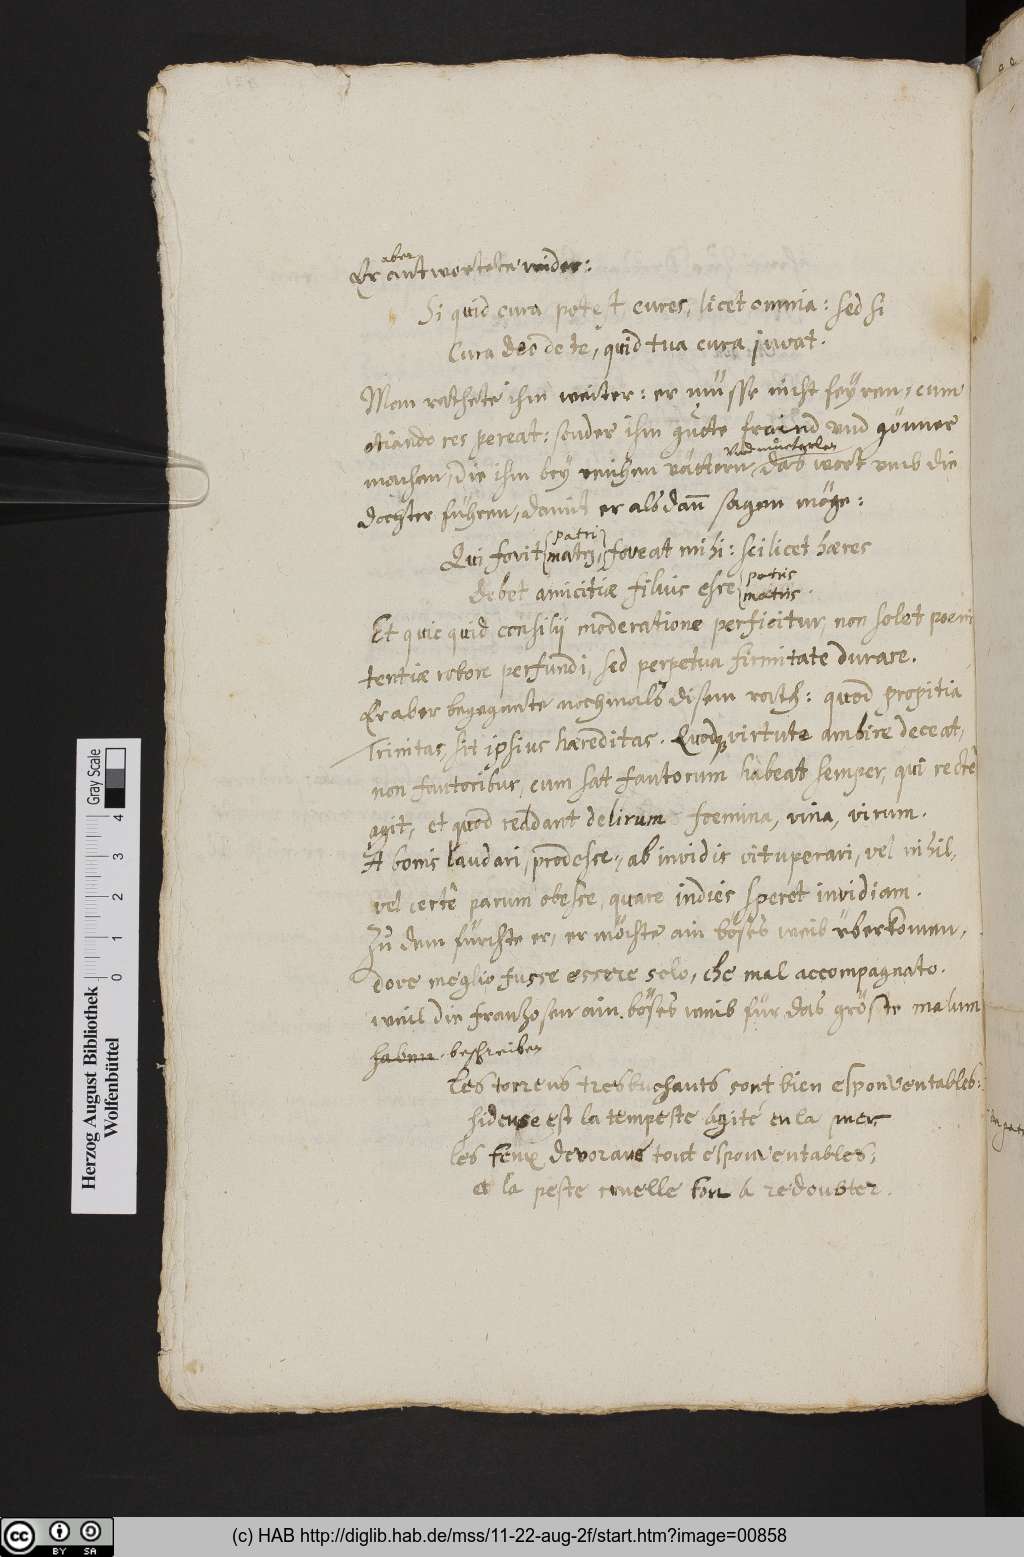 Er aber antwortete wider:
Si quid cura potest cures, licet omnia: sed si
Cura deo de te, quid tua cura juvat.
Man rathete ihm weiter: er müsse nicht feÿren, cum
otiando res pereat: sonder ihm guote fraind und gönner
machen, die ihm beÿ reichen vättern, und müeterlen das wort umb die
dochter führen, damit er alsdañ sagen möge:
Qui fovit patri matri, foveat mihi: scilicet hæres
debet amicitiæ filius esse patris matris.
Et quicquid consilij moderatione perficitur, non solet poeni
tentiæ robore perfundi, sed perpetua firmitate durare.
Er aber begegnete nochmals disem rath: quod propitia
Trinitas, sit ipsius hæreditas. Quodq virtute ambire deceat,
non fautoribus, cum sat fautorum habeat semper, qui recte
agit, et quod reddant delirum foemina, vina, virum.
A bonis laudari, prodesse, ab invidis vituperari, vel nihil,
vel certê parum obesse, quare indies speret invidiam.
Zu dem fürchte er, er möchte ain böses weib überkomen,
dove meglio fusse essere solo, che mal accompagnato.
weil die franzosen ain böses weib für das gröste malum
haben. beschreiben
Les torrens tresbuchants sont bien espouventables:
hideuse est la tempeste agité en la mer
les feux devorans tout espouventables,
et la peste cruelle fort a redoubter.
Herzog August Bibliothek
Wolfenbüttel
Gray Scale
0 1 2 3 4
(c) HAB http://diglib.hab.de/mss/11-22-aug-2f/start.htm?image=00858
cc BY SA